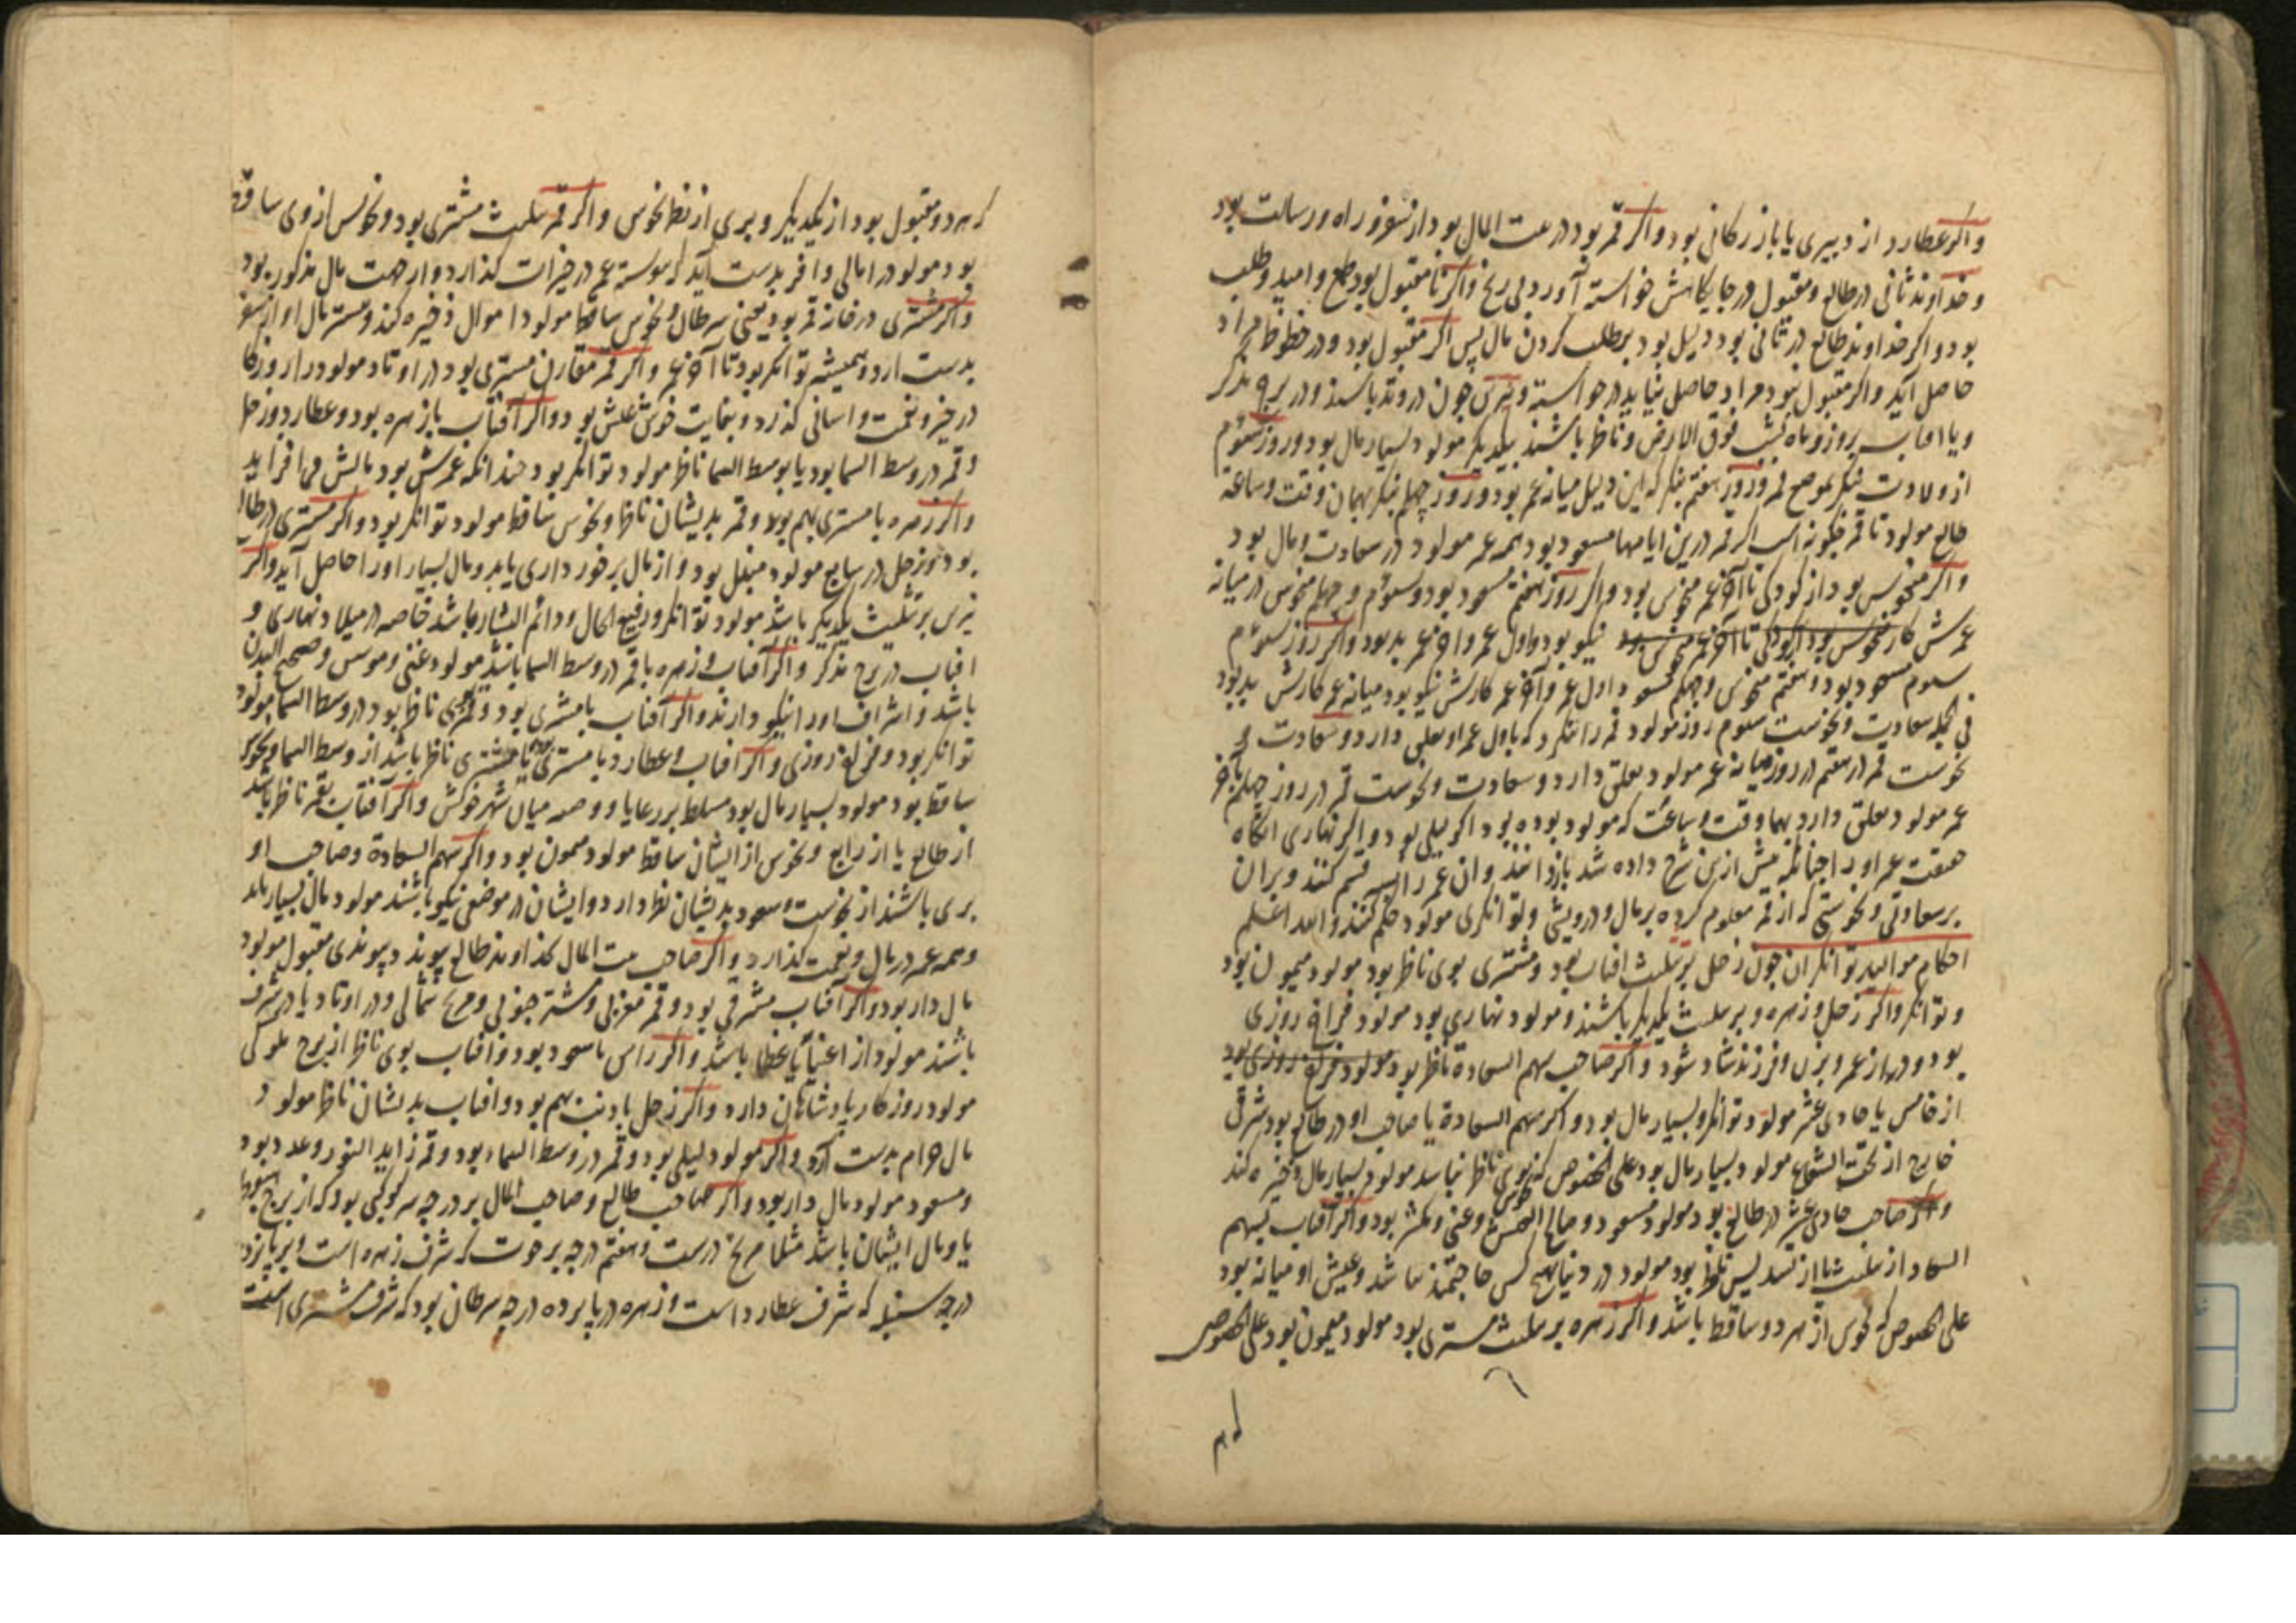 واکر عطارد از دبیری یا بازرکانی بود واکر قمر بود در بیت المال بود از سفر و راه و رسالت بود
و خداوند ثانی در طالع و مقبول در جایکاهش خواسته آورد بی رنج واکر نا مقبول بود طمع و امید و طلب
بود و اکر خداوند طالع در ثانی بود دلیل بود بر طلب کردن مال پس اکر مقبول بود و در حظوظ مراد
حاصل آید واکر مقبول نبود مراد حاصل نیاید در خواسته و نیرین چون در وتد باشند و در برج مذکر
و یا افتاب بروز و ماه بشب فوق الارض و ناظر باشند بیکدیکر مولود بسیار مال بود و روز سوم
از ولادت بنکر بموضع قمر و روز هفتم بنکر که این دلیل میانه عمر بود و روز چهلم بنکر بهمان وقت و ساعة
طالع مولود تا قمر چکونه است اکر قمر درین ایامها مسعود بود همه عمر مولود در سعادت و مال بود
واکر منحوس بود از کودکی تا آخر عمر منحوس بود و اکر روز هفتم مسعود بود و سوم و چهلم منحوس در میانه
عمرش کار نیکو بود و اول عمر و آخر عمر بد بود واکر روز سوم
سوم مسعود بود و هفتم منحوس و چهلم مسعود اول عمر و آخر عمر کارش نیکو بود میانه عمر کارش بد بود
فی الجمله سعادت و نحوست سوم روز مولود قمر را بنکرد که باول عمر او تعلق دارد و سعادت و
نحوست قمر در هفتم در روز میانه عمر مولود تعلق دارد و سعادت و نحوست قمر در روز چهلم بآخر
عمر مولود تعلق دارد بهما وقت و ساعت که مولود بوده بود اکر لیلی بود و اکر نهاری انکاه
حقیقت عمر او را چنانکه پیش ازین شرح داده شد بازدانند و ان عمر را قسم کنند و بران
بر سعادتی و نحوستی که از قمر معلوم کرده بر مال و درویشی و توانکری مولود حکم کنند والله اعلم
احکام موالید توانکران چون زحل بر تثلیث افتاب بود و مشتری بوی ناظر بود مولود میمون بود
و توانکر واکر زحل و زهره بر تثلیث یکدیکر باشند و مولود نهاری بود مولود فراخ روزی
بود و دراز عمر و بزن و فرزند شاد شود واکر صاحب سهم السعادة ناظر بود مولود فراخ روزی بود
از خامس یا حادی عشر مولود توانکر و بسیار مال بود و اکر سهم السعادة یا صاحب او در طالع بود شرقی
خارج از تحت الشعاع مولود بسیار مال بود علی الخصوص که بوی ناظر نباشد مولود بسیار مال ذخیره کند
واکر صاحب حادی عشر در طالع بود مولود مسعود و صالح العیش و غنی و مکثر بود واکر آفتاب بسهم
السعاد از تثلیث یا از تسدیس ناظر بود مولود در دنیا بهیچ کس حاجتمند نباشد و عیش او میانه بود
علی الخصوص که نحوس از هر دو ساقط باشد واکر زهره بر تثلیث مشتری بود مولود میمون بود علی الخصوص
که هر دو مقبول بود از یکدیکر و بری از نظر نحوس واکر قمر بتثلیث مشتری بود و نحوس از وی ساقط
بود مولود را مالی وافر بدست آید که پیوسته عمر در خیرات کذارد و از جهت مال مذکور بود
واکر مشتری در خانه قمر بود یعنی سرطان و نحوس ساقط مولود اموال ذخیره کند و بیشتر مال او از سفر
بدست ارد و همیشه توانکر بود تا آخر عمر واکر قمر مقارن مشتری بود در اوتاد مولود را روزکار
در خیر و نعمت و اسانی کذرد و بغایت خوش عیش بود واکر آفتاب با زهره بود و عطارد و زحل
و قمر در وسط السما بود یا بوسط السما ناظر مولود توانکر بود چندانکه عمرش بود مالش می افزاید
واکر زهره با مشتری بهم بود و قمر بدیشان ناظر و نحوس ساقط مولود توانکر بود واکر مشتری در طالع
بود و زحل در سابع مولود مقبل بود و از مال برخورداری یابد و مال بسیار او را حاصل آید واکر
نیرین بر تثلیث یکدیکر باشد مولود توانکر و رفیع الحال و دائم باشد خاصه در میلاد نهاری و
افتاب در برج مذکر واکر آفتاب و زهره با قمر در وسط السما باشند مولود غنی و موسر و صحیح البدن
باشد و اشراف او را نیکو دارند واکر آفتاب با مشتری بود و قمر بوی ناظر بود در وسط السما مولود
توانکر بود و فراخ روزی واکر افتاب و عطارد با مشتری یا بمشتری ناظر باشد از وسط السما و نحوس
ساقط بود مولود بسیار مال بود مسلط بر رعایا و میان شهر خویش واکر آفتاب بقمر ناظر باشد
از طالع یا از رابع و نحوس از ایشان ساقط مولود میمون بود واکر سهم السعادة و صاحب او
بری باشند از نحوست و سعود بدیشان نظر دارد و ایشان در موضعی نیکو باشند مولود مال بسیار یابد
و همه عمر در مال و نعمت کذارد واکر صاحب بیت المال بخداوند طالع پیوندد پیوندی مقبول مولود
مال دار بود واکر آفتاب مشرقی بود و قمر مغربی و مشتری جنوبی و مریخ شمالی و در اوتاد یا در شرف
باشند مولود از اغنیای عظما باشد واکر راس با سعود بود و افتاب بوی ناظر از برج ملوکی
مولود روزکار پادشاهان دارد واکر زحل با ذنب بهم بود و افتاب بدیشان ناظر مولود
مال حرام بدست آرد واکر مولود لیلی بود و قمر در وسط السماء بود و قمر زاید النور و عدد بود
و مسعود مولود مال دار بود واکر صاحب طالع و صاحب المال بر درجه کوکبی بود که از برج هبوط
یا وبال ایشان باشد مثلا مریخ در بیست و هفتم درجه برج حوت که شرف زهره است و بر پانزده
درجه سنبله که شرف عطارد است و زهره در پانزده درجه سرطان بود که شرف مشتری است